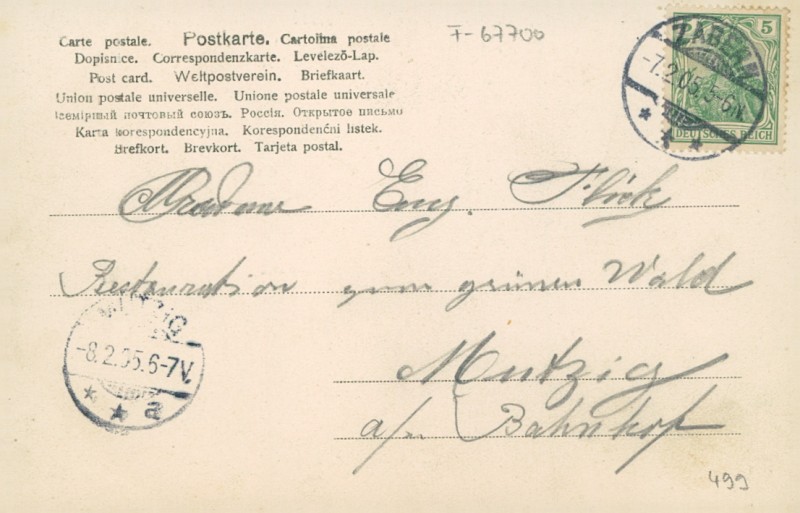 Carte postale. Postkarte. Cartolina postale
Dopisnice. Correspondenzkarte. Levelező-Lap.
Post card. Weltpostverein. Briefkaart.
Union postale universelle. Unione postale universale
Всемірный почтовый союзъ. Россія. Открытое письмо
Karta korespondencyjna. Korespondenční listek.
Brefkort. Brevkort. Tarjeta postal.
F-67700
5
DEUTSCHES REICH
ZABERN
-7.2.05.5-6N.
Madame Eug. Flöck
Restauration zum grünen Wald
Mutzig
a/m Bahnhof
MUTZIG
-8.2.05.6-7V.
a
499